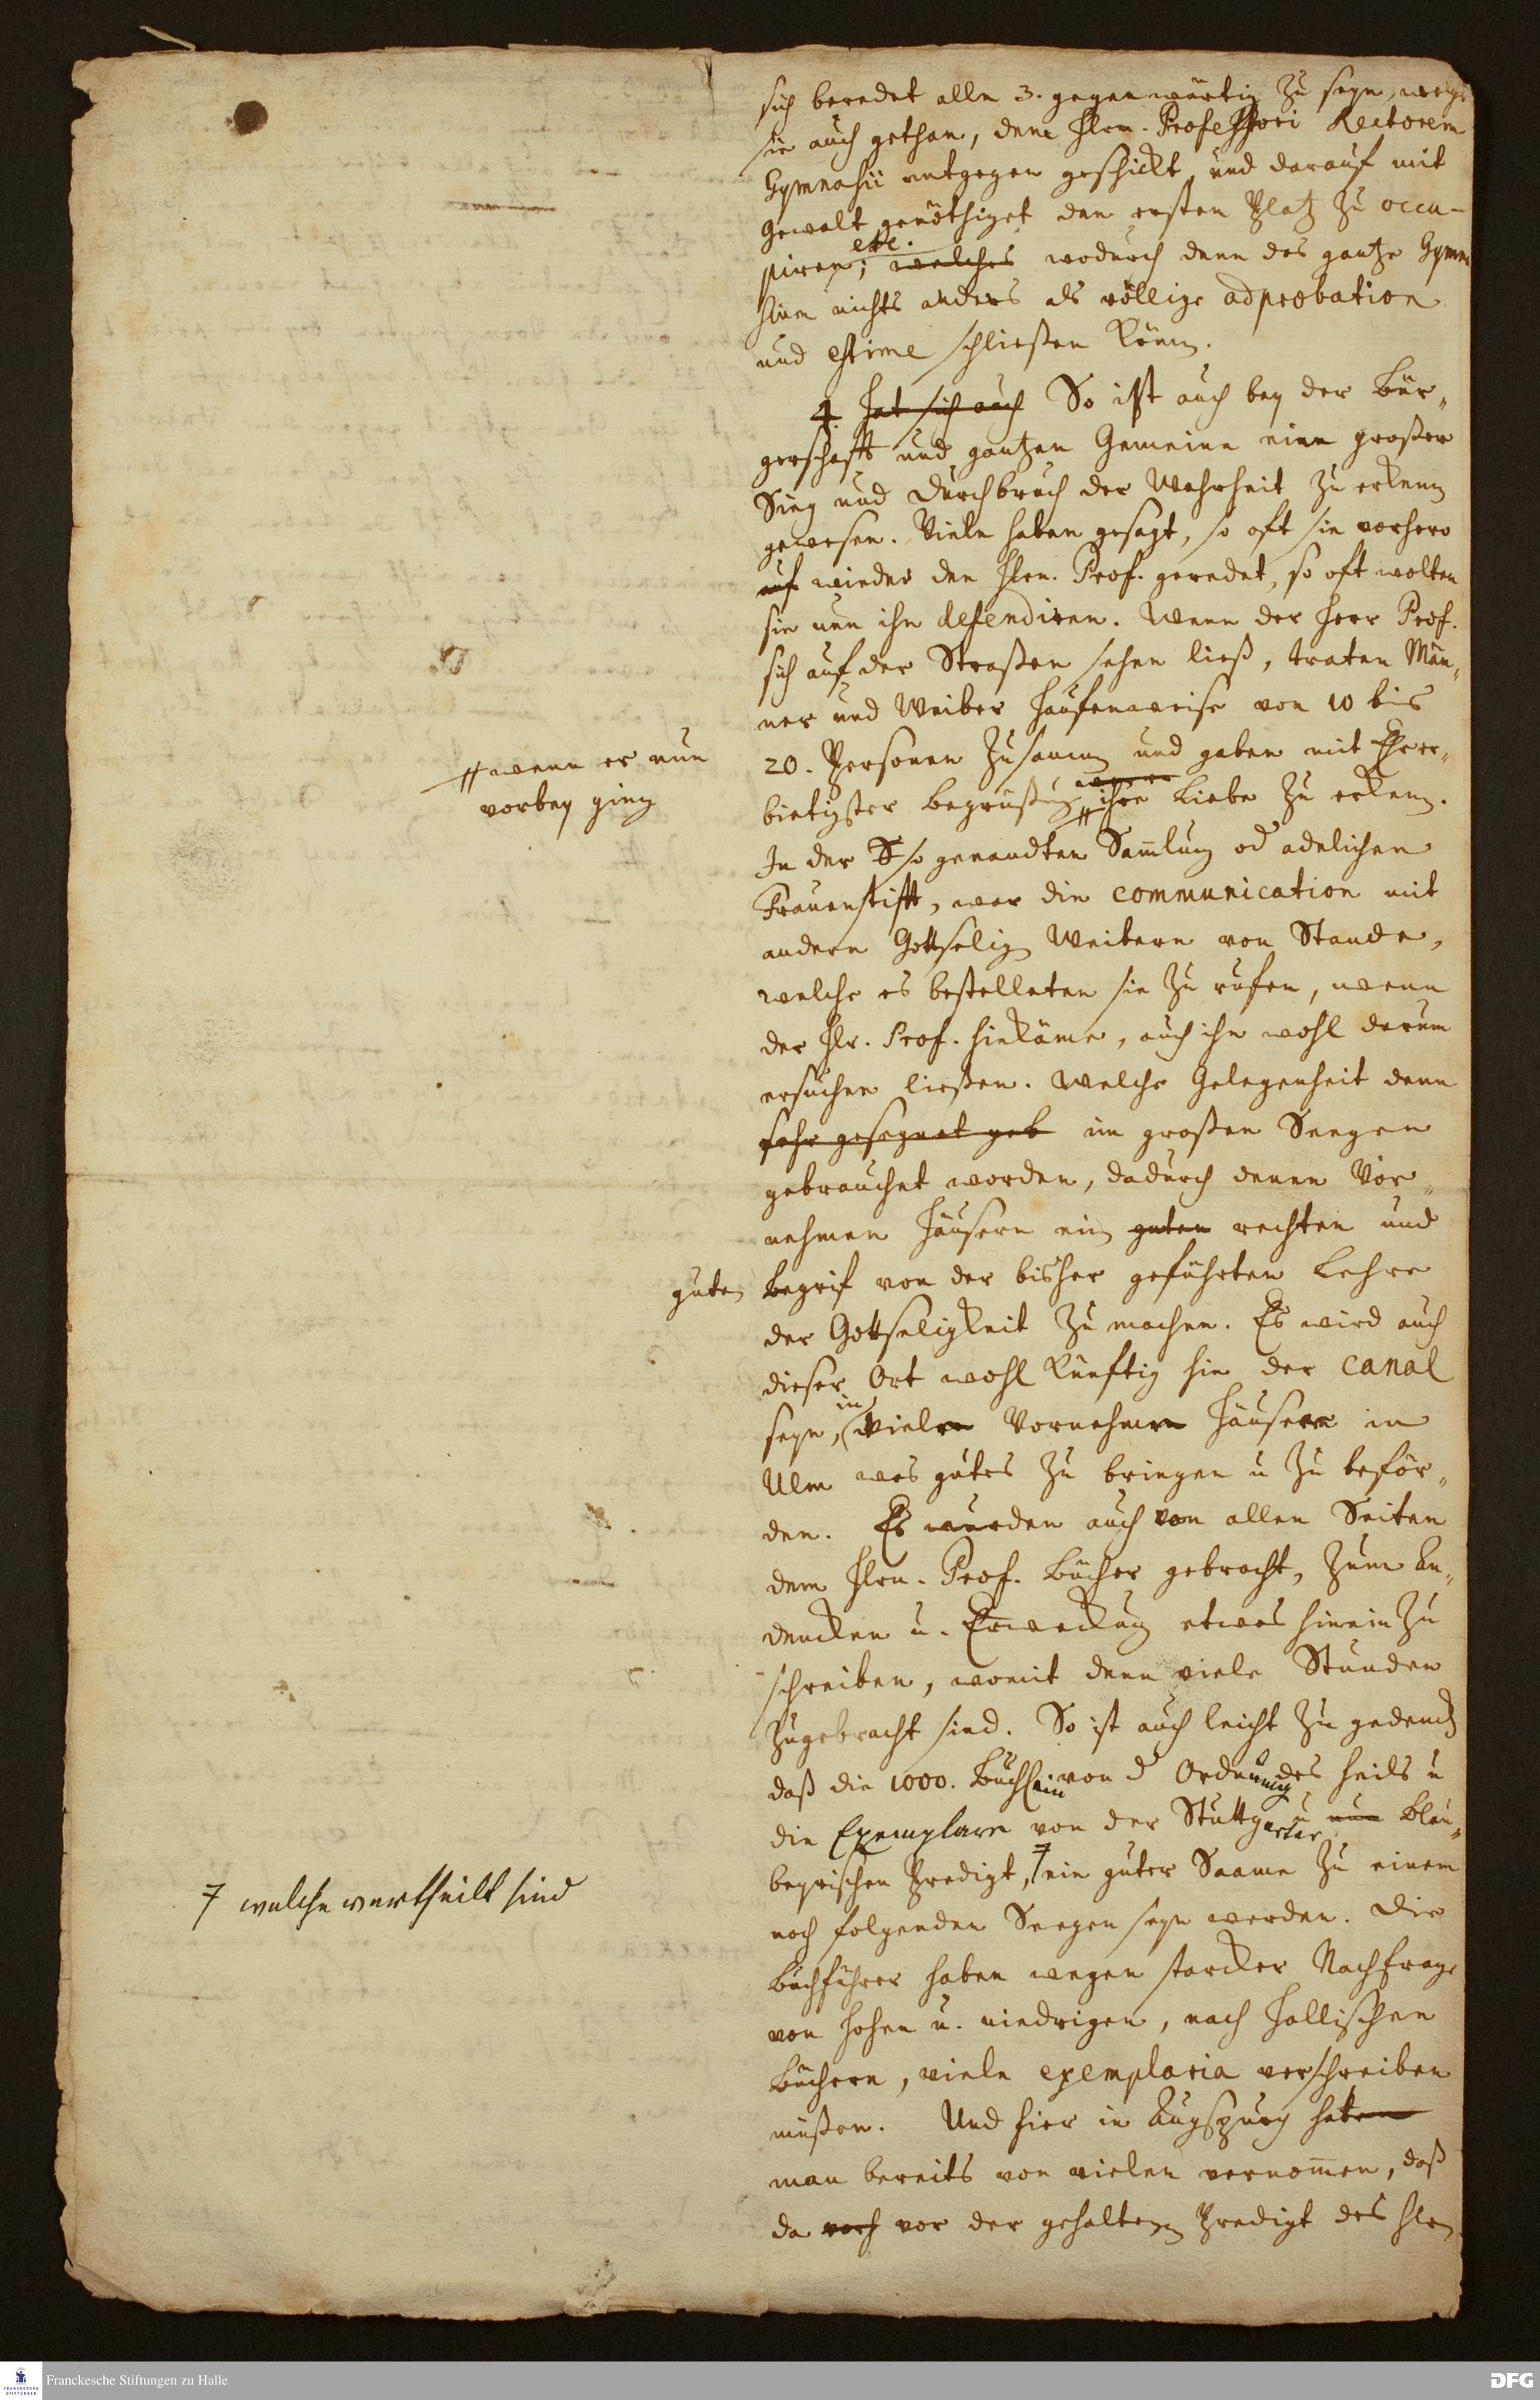 sich beredet alle 3. gegenwärtig zu seyn, welches
sie auch gethan, dene Hlrn. Professori Rectorem
Gymnasii entgegen geschickt, und darauf mit
Gewalt genöthiget den ersten Platz zu occu-
etc.
piren; welches wodurch denn das gantze Gymna
sium nichts anders als völlige adprobation
und estime schließen könen.
4. Hat sich auch So ist auch bey der Bür„
gerschafft und gantzen Gemeine eine großer
Sieg und Durchbruch der Wahrheit zu erkenen
gewesen. Viele haben gesagt, so oft sie vorhero
auf wieder den Hlrn. Prof. geredet, so oft wolten
sie nun ihn defendiren. Wenn der Herr Prof.
sich auf der Straßen sehen ließ, traten Män„
ner und Weiber Haufenweise von 10 bis
# wenn er nun
vorbey ging
20. Personen zusamen und gaben mit Ehrer„
bietigster Begrüßung # ihre Liebe zu erkenen.
In der S so genandten Samlung od adelichen
Frauenstifft, war die communication mit
andern Gottselig Weibern von Stande,
welche es bestelleten sie zu rufen, wenn
der Hlr. Prof. hinkäme, auch ihn wohl darum
ersuchen ließen. Welche Gelegenheit denn
sehr gesegnet geb im großen Seegen
gebrauchet worden, dadurch denen Vor„
nehmen Häusern ein guten rechten und
guten Begrif von der bisher geführten Lehre
der Gottseligkeit zu machen. Es wird auch
dieser Ort wohl künftig hin der canal
seyn, in vielen Vornehmen Häusern in
Ulm was gutes zu bringen u zu beför„
den. Es wurden auch von allen Seiten
dem Hlrn. Prof. Bücher gebracht, zum An„
dencken u. Erweckung etwas hinein zu
schreiben, womit denn viele Stunden
zugebracht sind. So ist auch leicht zu gedencken
daß die 1000. Büchlein von d Ordnung des Heils u
die Exemplare von der Stuttgarter u nun Blau„
beyrischen Predigt, 7 ein guter Saame zu einem
7 welche vertheilt sind
noch folgenden Seegen seyn werden. Die
Buchführer haben wegen starcker Nachfrage
von Hohen u. niedrigen, nach Hallischen
Büchern, viele exemplaria verschreiben
müßen. Und hier in Augspurg haben
man bereits von vielen vernomen, daß
da noch vor der gehaltenen Predigt des Hlrn
Franckesche Stiftungen zu Halle
DFG